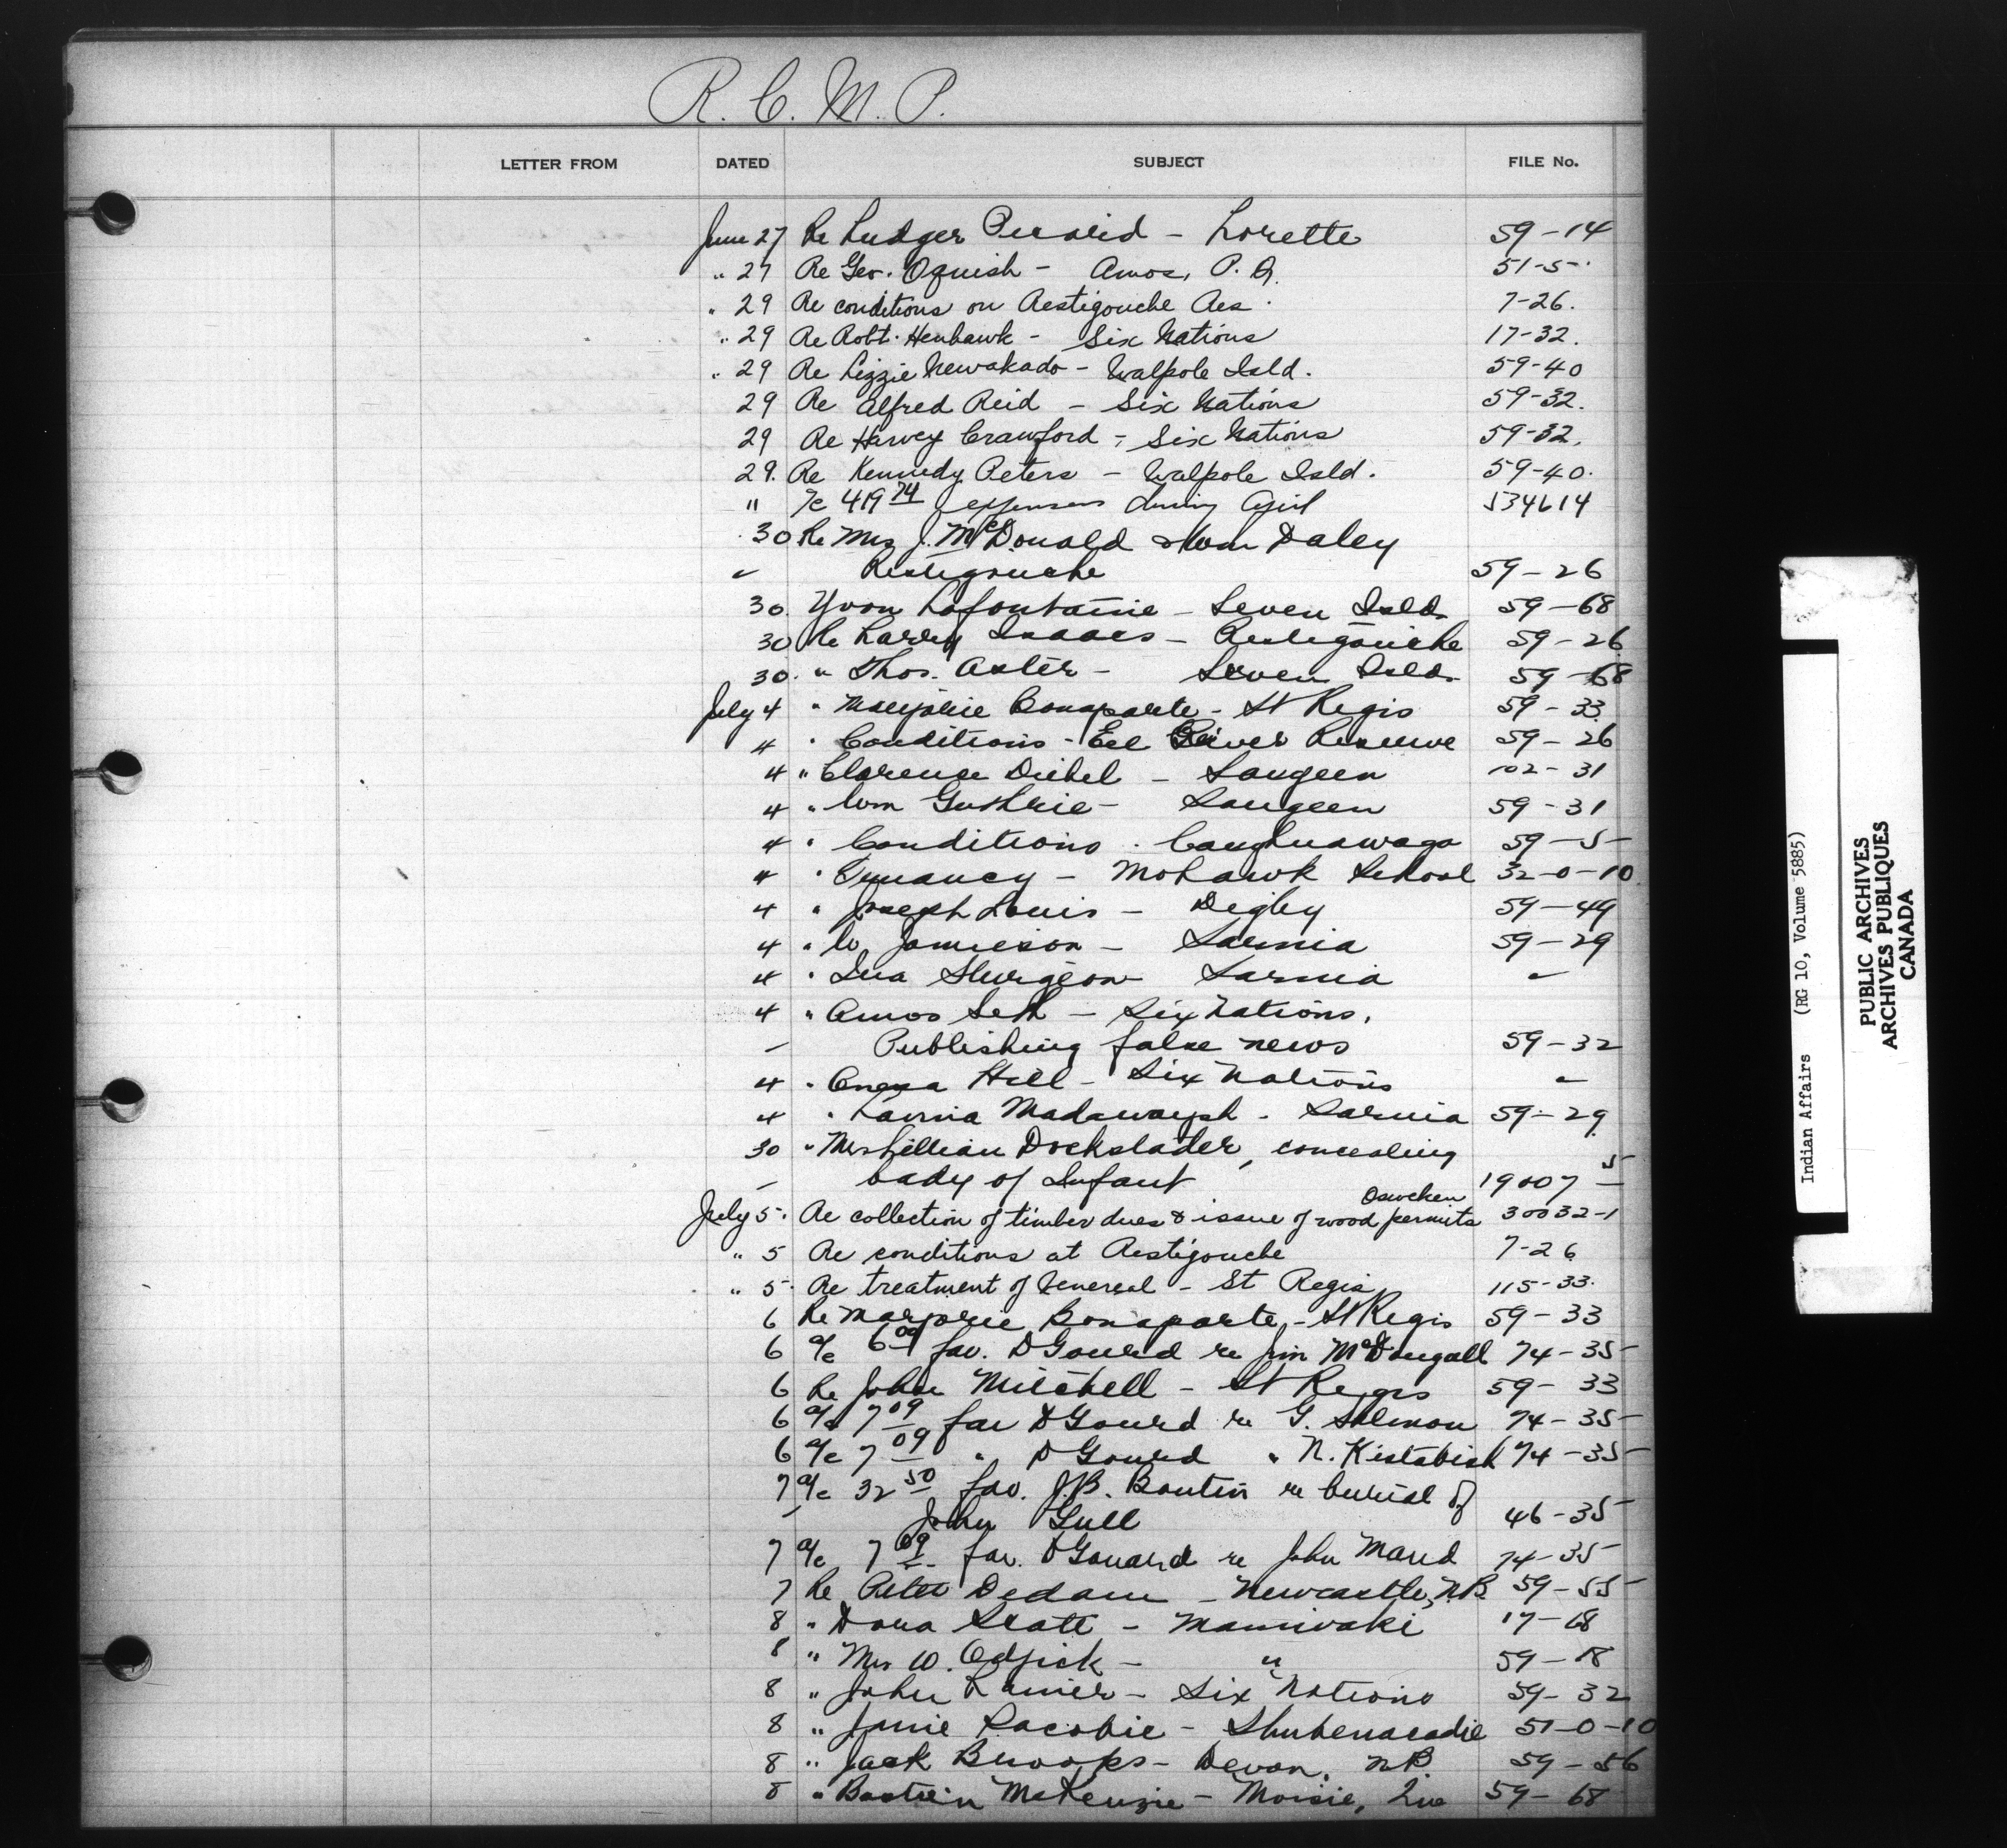 R. C. M. P.
LETTER FROM DATED SUBJECT FILE No.
June 27 Re Ludger Picard - Lorette 59-14
" 27 Re Geo. Oguish - Amos, P.Q. 51-5
" 29 Re conditions on Restigouche Res. 7-26.
" 29 Re Robt. Henhawk - Six Nations 17-32.
" 29 Re Lizzie Newakado - Walpole Isld. 59-40
29 Re Alfred Reid - Six Nations 59-32.
29 Re Harvey Crawford - Six Nations 59-32.
29. Re Kennedy Peters - Walpole Isld. 59-40.
" a/c 419 74 expenses during April 534614
30 Re Mrs J. McDonald & Wm Daley
" Restigouche 59-26
30. Yvon Lafontaine - Seven Isld. 59-68
30 Re Larry Isaacs - Restigouche 59-26
30. " Thos. Aster - Seven Isld. 59-68
July 4 " Marjorie Bonaparte - St Regis 59-33
4 " Conditions - Eel River Reserve 59-26
4 " Clarence Diebel - Saugeen 102-31
4 " Wm Guthrie - Saugeen 59-31
4 " Conditions - Caughnawaga 59-5
4 " Truancy - Mohawk School 32-0-10
4 " Joseph Louis - Digby 59-49
4 " W. Jamieson - Sarnia 59-29
4 " Ina Sturgeon Sarnia "
4 " Amos Seth - Six Nations,
- Publishing false news 59-32
4 " Hill - Six Nations "
4 " Lavina Madawaysh - Sarnia 59-29
30 " Mrs Lillian Dockstader, concealing
- body of Infant 19007-5
July 5. Re collection of timber dues & issue of wood permits Osweken 30032-1
" 5 Re conditions at Restigouche 7-26
" 5. Re treatment of Venereal - St Regis 115-33.
6 Re Marjorie Bonaparte - St Regis 59-33
6 a/c 6 09 fav. D Gourd re Jim McDougall 74-35
6 Re John Mitchell - St Regis 59-33
6 a/c 7 09 fav D Gourd re G. Salmon 74-35
6 a/c 7 09 " D Gourd " N. Kistabish 74-35
7 a/c 32 50 fav. J.B. Boutin re burial of
- John Gull 46-35
7 a/c 7 09 fav. D Gourd re John Mard 74-35
7 Re Peter Dedam - Newcastle, N.B. 59-55
8 " Dora Scott - Maniwaki 17-18
8 " Mrs W. Odjick - " 59-18
8 " John - Six Nations 59-32
8 " Sacobie - Shubenacadie 51-0-10
8 " Jack Brooks - Devon, N.B. 59-56
8 " Bastien McKenzie - Moisie, Que 59-68
Indian Affairs (RG 10, Volume 5885)
PUBLIC ARCHIVES
ARCHIVES PUBLIQUES
CANADA